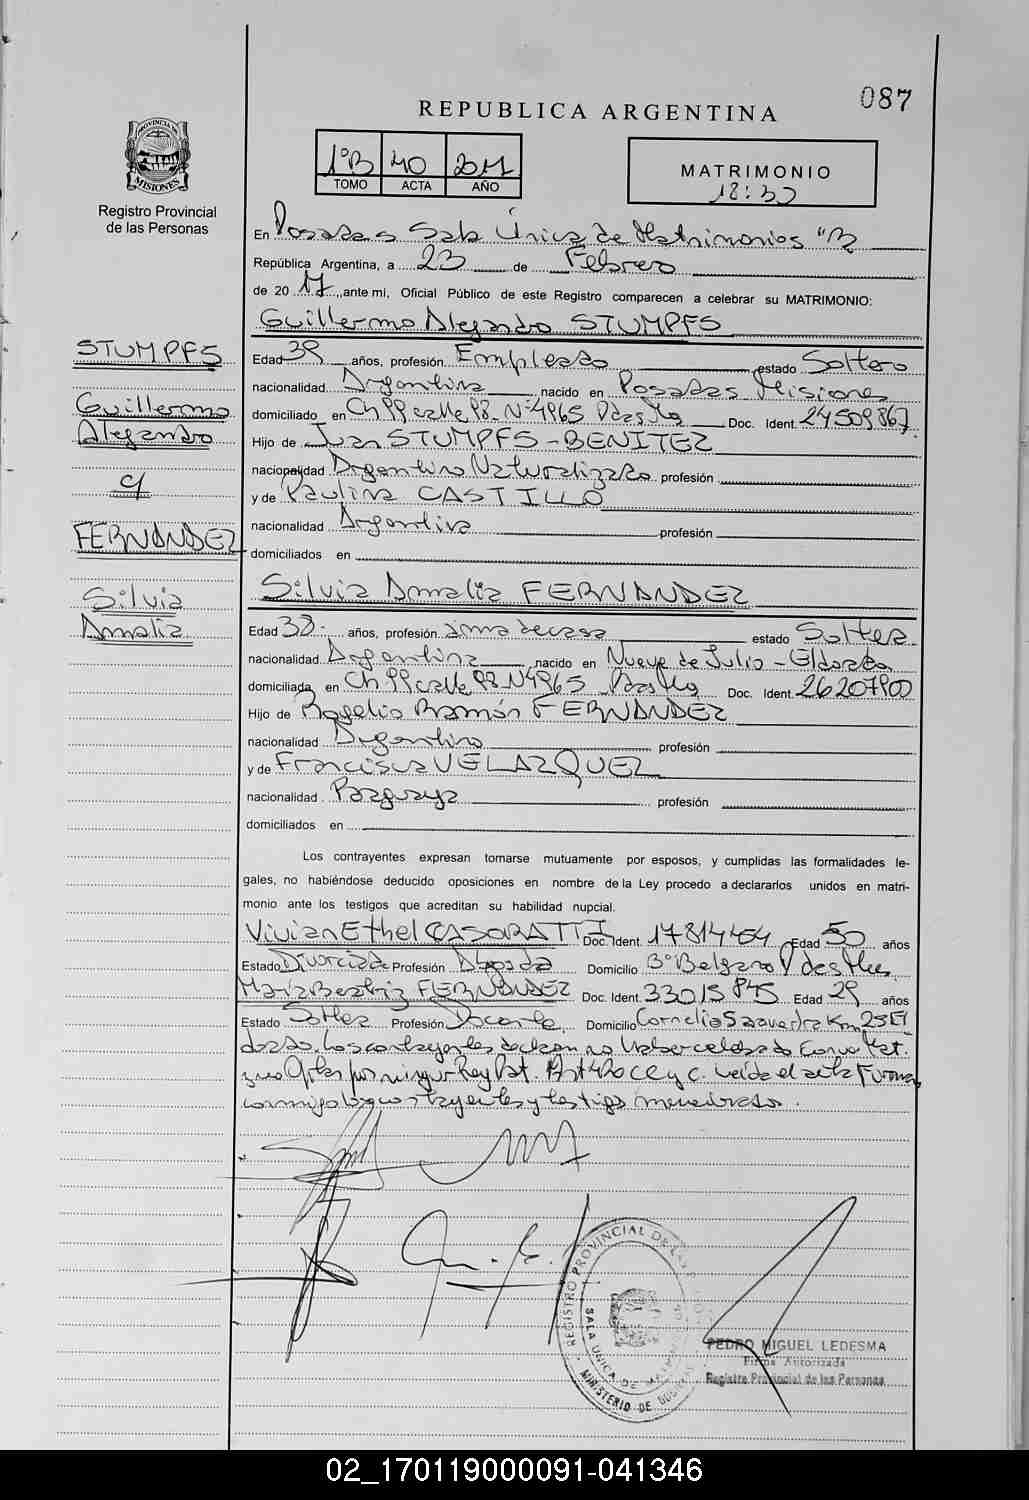 087
REPUBLICA ARGENTINA
PROVINCIA DE
MISIONES
Registro Provincial
de las Personas
1°B 40
TOMO ACTA AÑO
MATRIMONIO
En Posadas Sala Única de Matrimonios "B
República Argentina, a 23 de Febrero
de 20 17 ,ante mi, Oficial Público de este Registro comparecen a celebrar su MATRIMONIO:
Guillermo Alejandro STUMPFS
STUMPFS
Guillermo
Alejandro
c/
FERNANDEZ
Silvia
Amalia
Edad 39 años, profesión Empleado estado Soltero
nacionalidad Argentina nacido en Posadas Misiones
domiciliado en Ch 99 calle 98 N°4965 Pdas Mnes Doc. Ident. 24509867
Hijo de Juan STUMPFS-BENITEZ
nacionalidad Argentino Naturalizado profesión
y de Paulina CASTILLO
nacionalidad Argentina profesión
domiciliados en
Silvia Amalia FERNANDEZ
Edad 38 años, profesión ama de casa estado Soltera
nacionalidad Argentina nacido en Nueve de Julio - Eldorado
domiciliada en Ch 99 calle 98 N°4965 Pdas Mnes Doc. Ident. 26207900
Hijo de Rogelio Ramón FERNANDEZ
nacionalidad Argentino profesión
y de Francisca VELAZQUEZ
nacionalidad Paraguaya profesión
domiciliados en
Los contrayentes expresan tomarse mutuamente por esposos, y cumplidas las formalidades le-
gales, no habiéndose deducido oposiciones en nombre de la Ley procedo a declararlos unidos en matri-
monio ante los testigos que acreditan su habilidad nupcial.
Vivian Ethel CASORATTI Doc. Ident. 17814464 Edad 50 años
Estado Divorciada Profesión Abogada Domicilio B° Belgrano Pdas Mnes
Maria Beatriz FERNANDEZ Doc. Ident. 33015845 Edad 29 años
Estado Soltera Profesión Docente Domicilio Cornelio Saavedra Km 25 El
dorado. Los contrayentes declaran no haber celebrado Conv. Mat.
y no Optar por ningun Reg Pat. Leida el acta Firman
conmigo los contrayentes y testigos mencionados.
REGISTRO PROVINCIAL DE LAS
SALA UNICA DE
MINISTERIO DE GOBIERNO
PEDRO MIGUEL LEDESMA
Firma Autorizada
Registro Provincial de las Personas
02_170119000091-041346